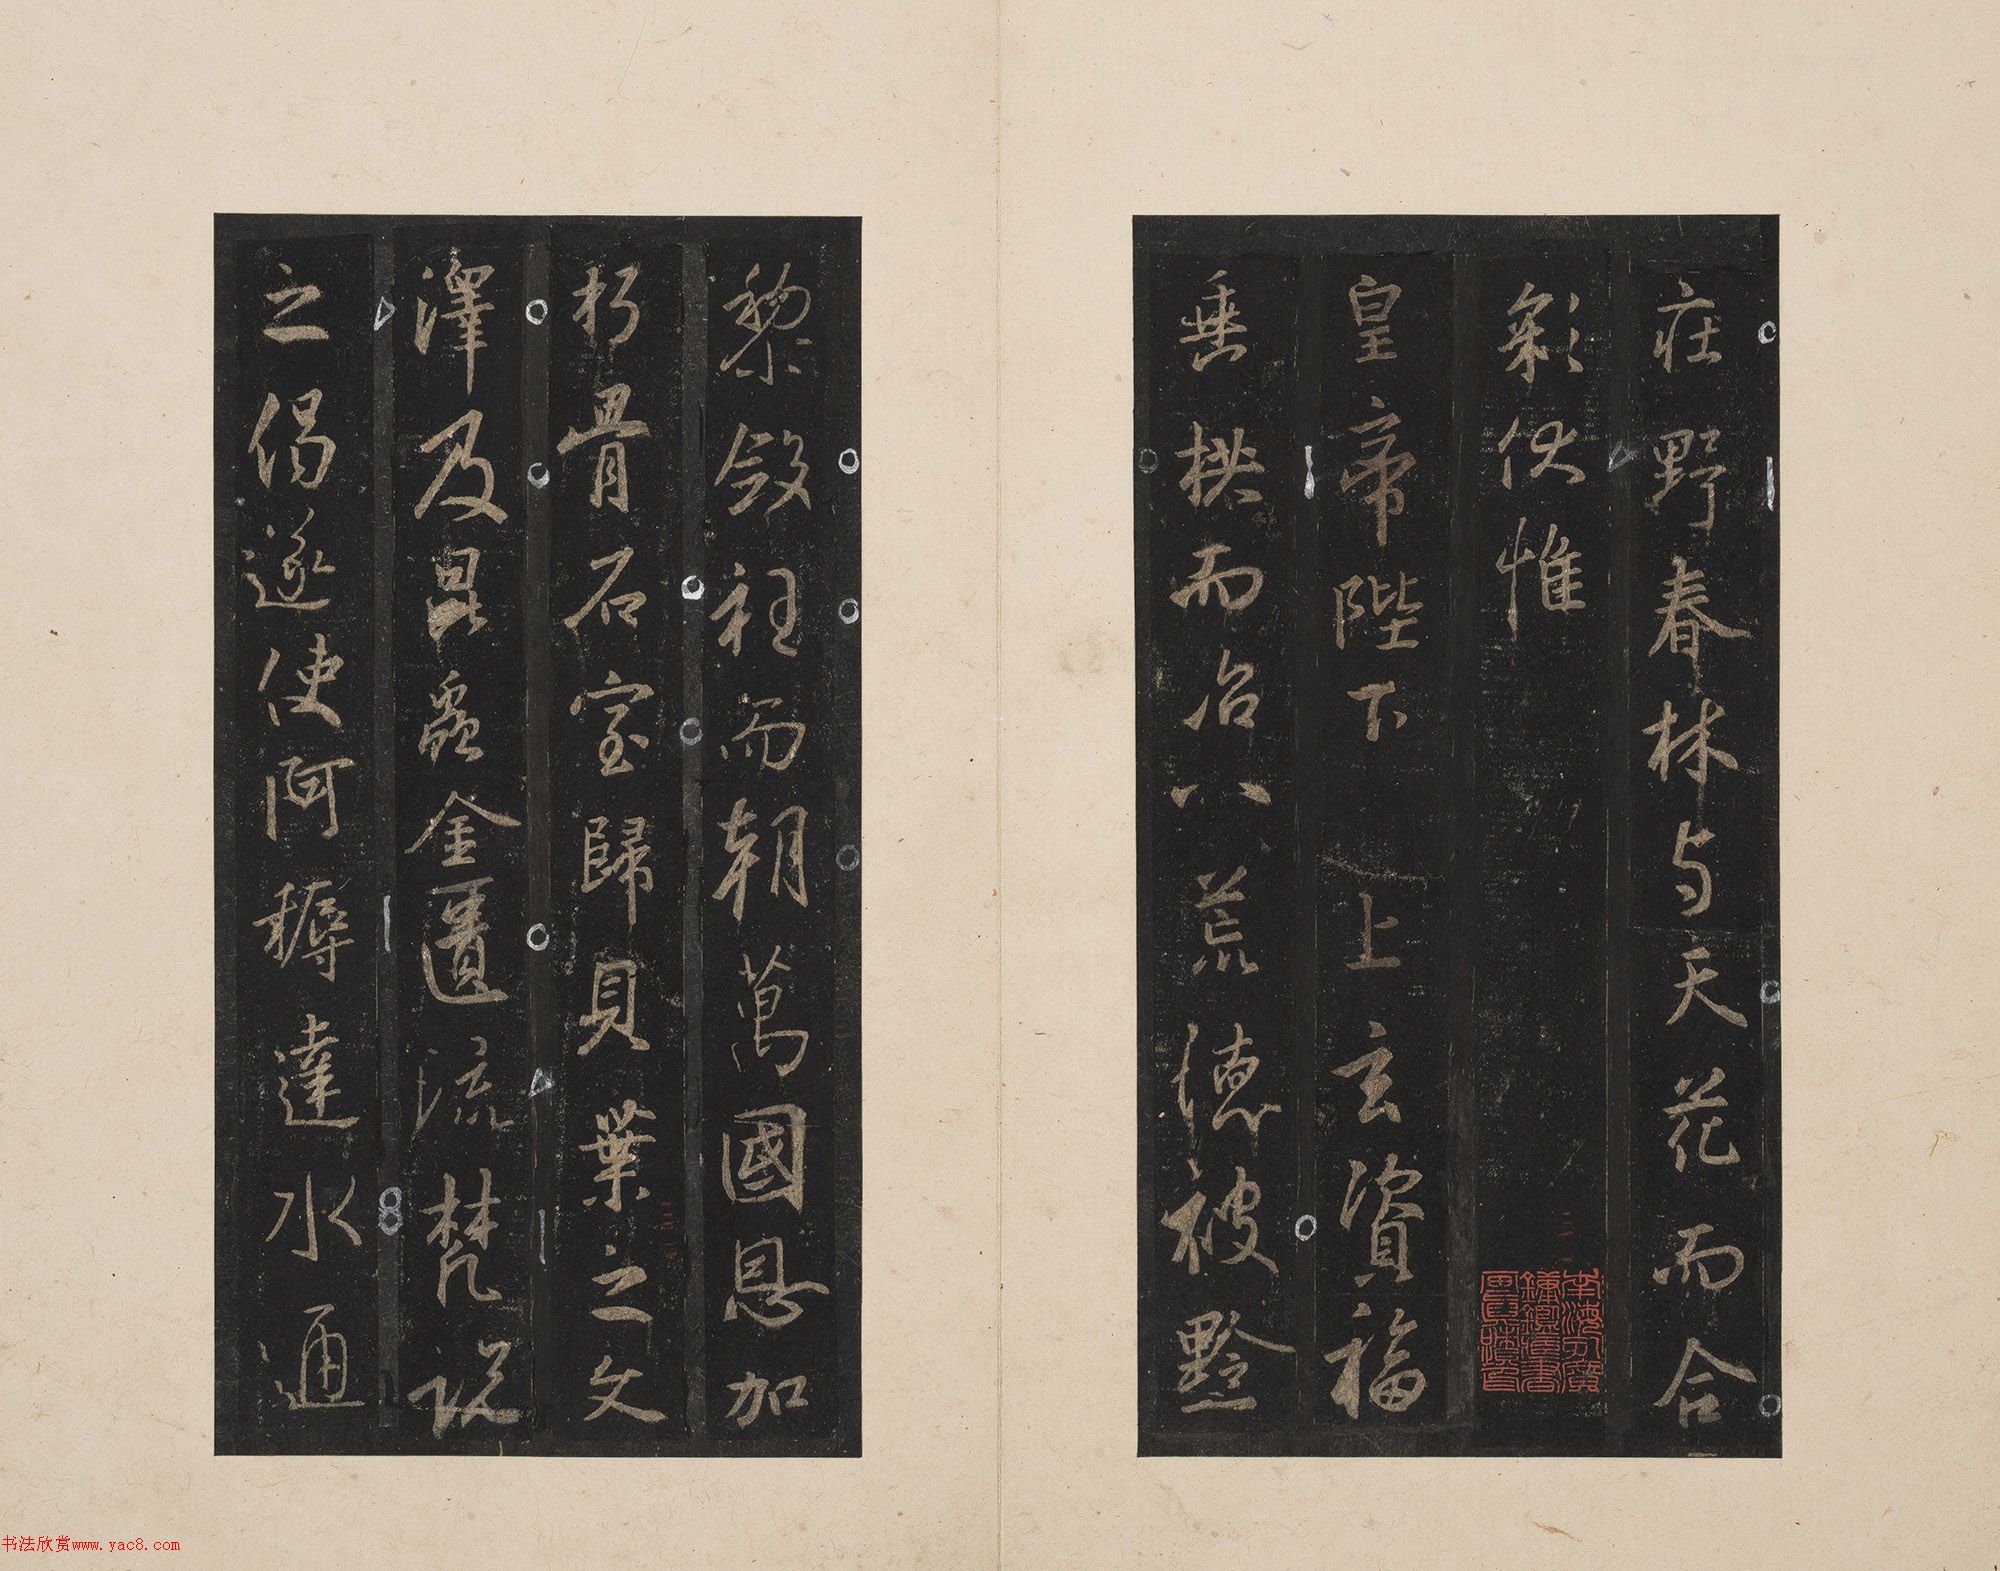 庄野春林与天花而合
彩伏惟
皇帝陛下上玄資福
垂拱而治八荒德被黔
黎斂衽而朝萬國恩加
朽骨石室歸貝葉之文
澤及昆蟲金匱流梵說
之偈遂使阿耨達水通
南海孔廣
鏞鑑藏書
书法欣赏www.yac8.com